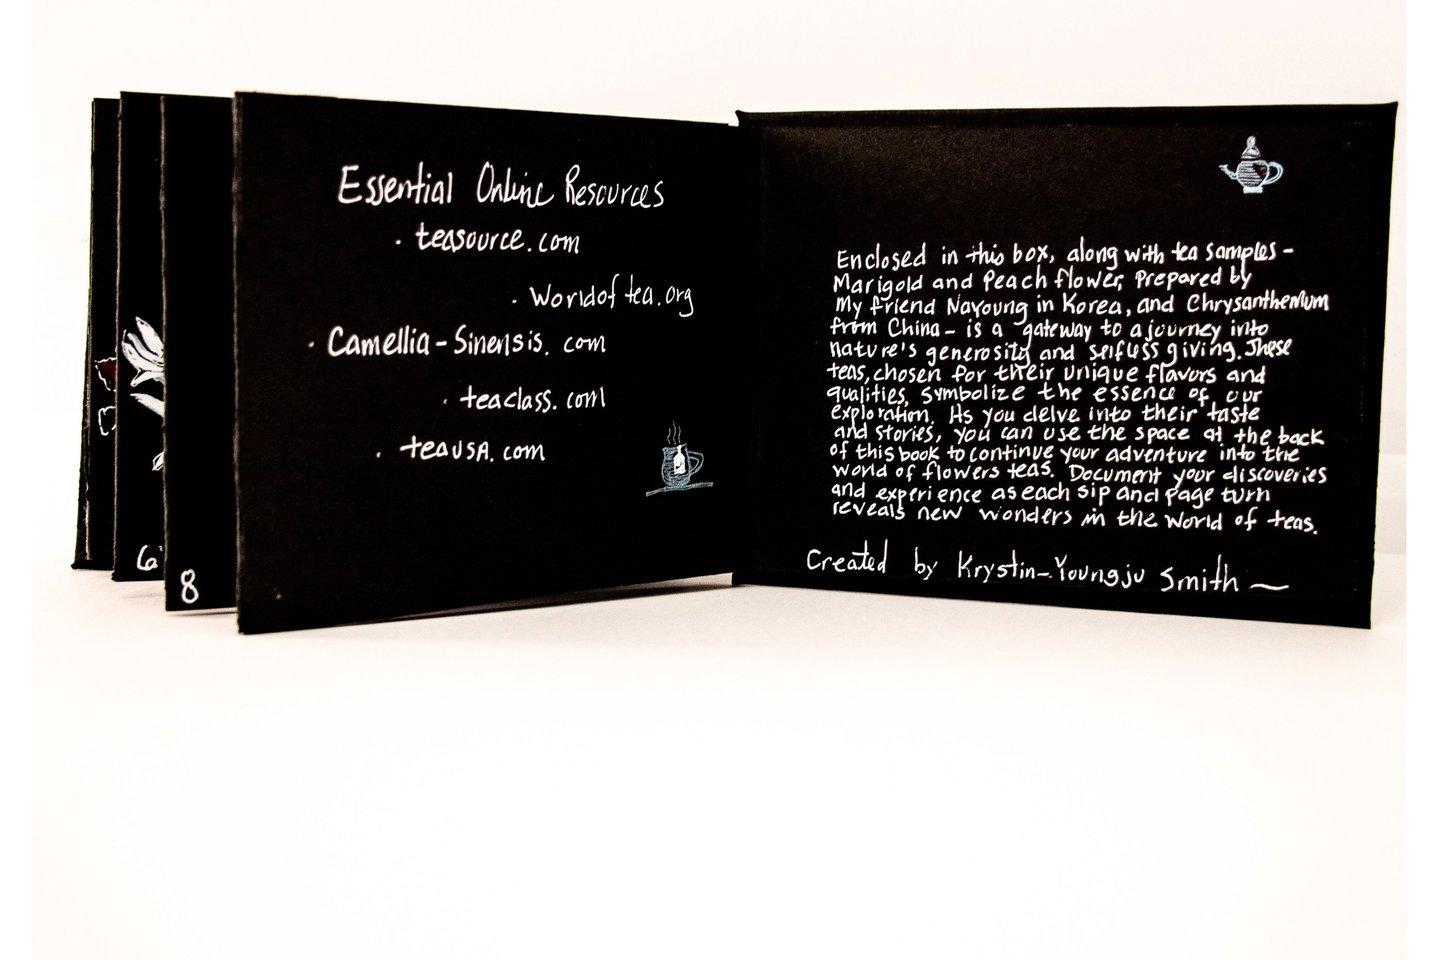 6
8
Essential Online Resources
· teasource.com
· Worldof tea.org
· Camellia-Sinensis.com
· teaclass.com
· teausa.com
Enclosed in this box, along with tea samples -
Marigold and Peach flower, Prepared by
My friend Nayoung in Korea, and Chrysanthemum
from China - is a gateway to a journey into
nature's generosity and selfuss giving. These
teas, chosen for their unique flavors and
qualities, symbolize the essence of our
exploration. As you delve into their taste
and stories, you can use the space at the back
of this book to continue your adventure into the
world of flowers teas. Document your discoveries
and experience as each sip and page turn
reveals new wonders in the world of teas.
Created by Krystin-Youngju Smith ~